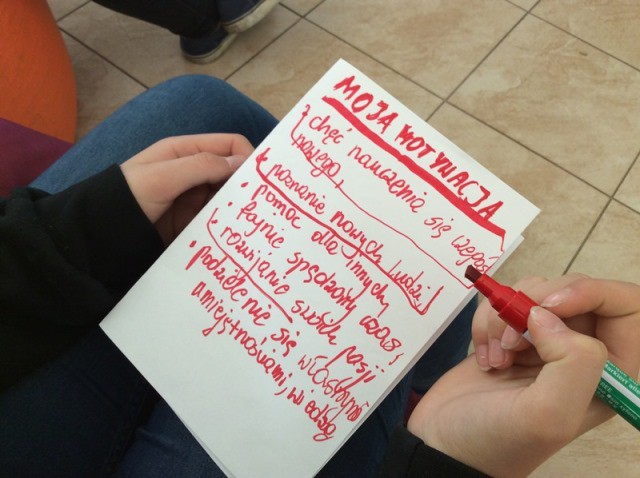 MOJA MOTYWACJA
chęć nauczenia się czegoś
nowego,
• poznanie nowych ludzi
• pomoc dla innych
• fajnie spędzony czas,
• rozwijanie swoich pasji
• podzielenie się własnymi
umiejętnościami, wiedzą